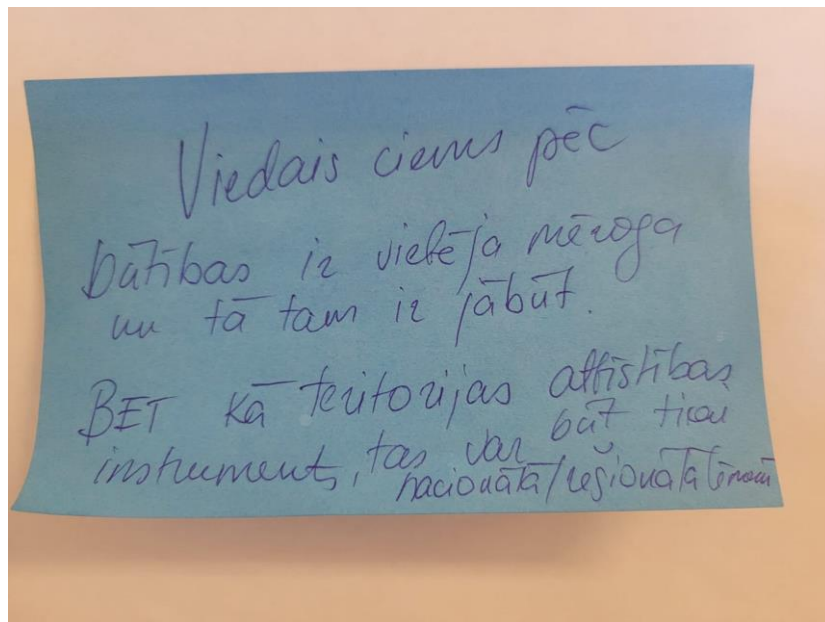 Viedais ciems pēc
būtības ir vietēja mēroga
un tā tam ir jābūt.
BET kā teritorijas attīstības
instruments, tas var būt tikai
nacionālā/reģionālā līmenī